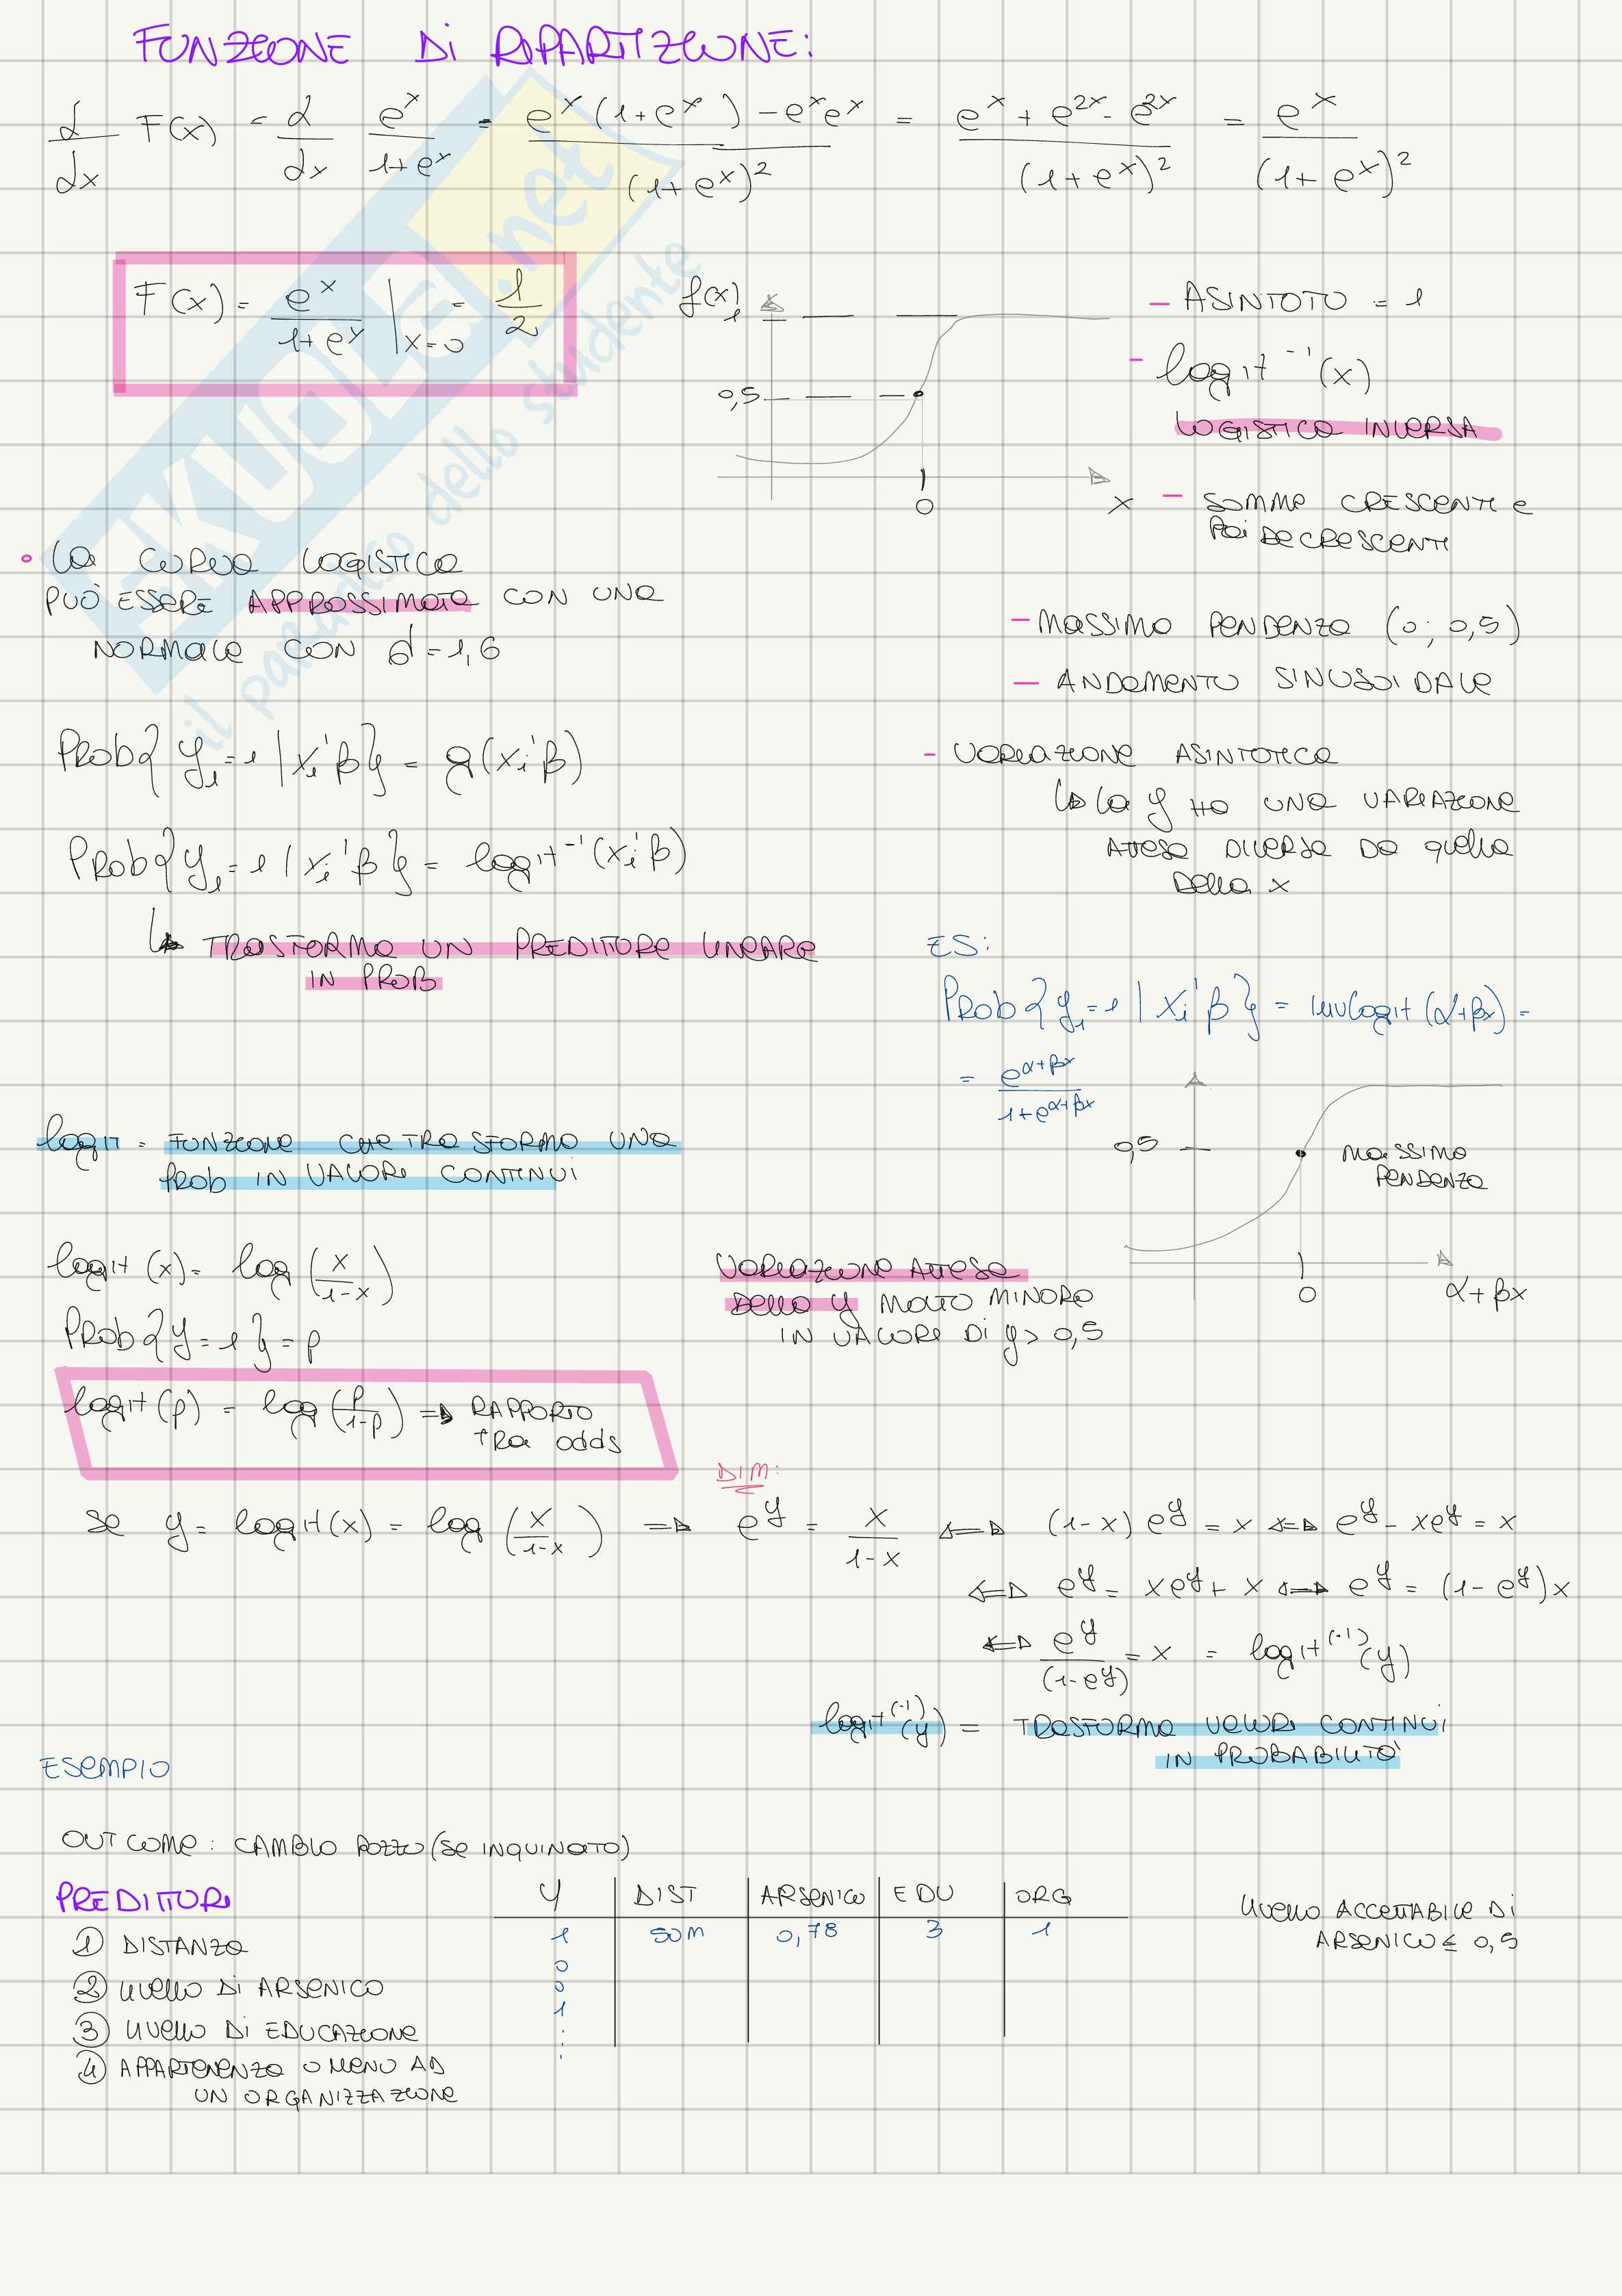 FUNZIONE DI RIPARTIZIONE:
d/dx F(x) = d/dx e^x/(1+e^x) = (e^x (1+e^x) - e^x e^x)/(1+e^x)^2 = (e^x + e^2x - e^2x)/(1+e^x)^2 = e^x/(1+e^x)^2
F(x) = e^x/(1+e^x) |x=0 = 1/2
f(x)
1
0,5
0
x
- ASINTOTO = 1
- logit^-1 (x)
LOGISTICA INVERSA
- SOMMA CRESCENTI e
POI DECRESCENTI
• La CURVA LOGISTICA
PUÒ ESSERE APPROSSIMATA CON UNA
NORMALE CON σ = 1,6
- MASSIMA PENDENZA (0; 0,5)
- ANDAMENTO SINUSOIDALE
- VARIAZIONE ASINTOTICA
↳ la y HA UNA VARIAZIONE
ATTESA DIVERSA DA quella
Della x
PROB{y_i = 1 | x_i'β} = g(x_i'β)
PROB{y_i = 1 | x_i'β} = logit^-1 (x_i'β)
↳ TRASFORMA UN PREDITTORE LINEARE
IN PROB
ES:
PROB{y_i = 1 | x_i'β} = invlogit (α+βx) =
= e^(α+βx)/(1+e^(α+βx))
0,5
MASSIMA
PENDENZA
0
α+βx
logit = FUNZIONE CHE TRASFORMA UNA
PROB IN VALORI CONTINUI
logit (x) = log (x/(1-x))
PROB{y = 1} = p
logit (p) = log (p/(1-p)) => RAPPORTO
TRA odds
VARIAZIONE ATTESA
Della y MOLTO MINORE
IN VALORI DI y > 0,5
DIM:
se y = logit(x) = log (x/(1-x)) => e^y = x/(1-x) <=> (1-x) e^y = x <=> e^y - xe^y = x
<=> e^y = xe^y + x <=> e^y = (1-e^y)x
<=> e^y/(1-e^y) = x = logit^(-1) (y)
logit^(-1) (y) = TRASFORMA VALORI CONTINUI
IN PROBABILITÀ
ESEMPIO
OUTCOME: CAMBIO POZZO (se INQUINATO)
PREDITTORI
① DISTANZA
② LIVELLO DI ARSENICO
③ LIVELLO DI EDUCAZIONE
④ APPARTENENZA O MENO AD
UN ORGANIZZAZIONE
y DIST ARSENICO EDU ORG
1 50m 0,78 3 1
0
0
1
⋮
LIVELLO ACCETTABILE DI
ARSENICO ≤ 0,5
SKUOLA.net
il paradiso dello studente